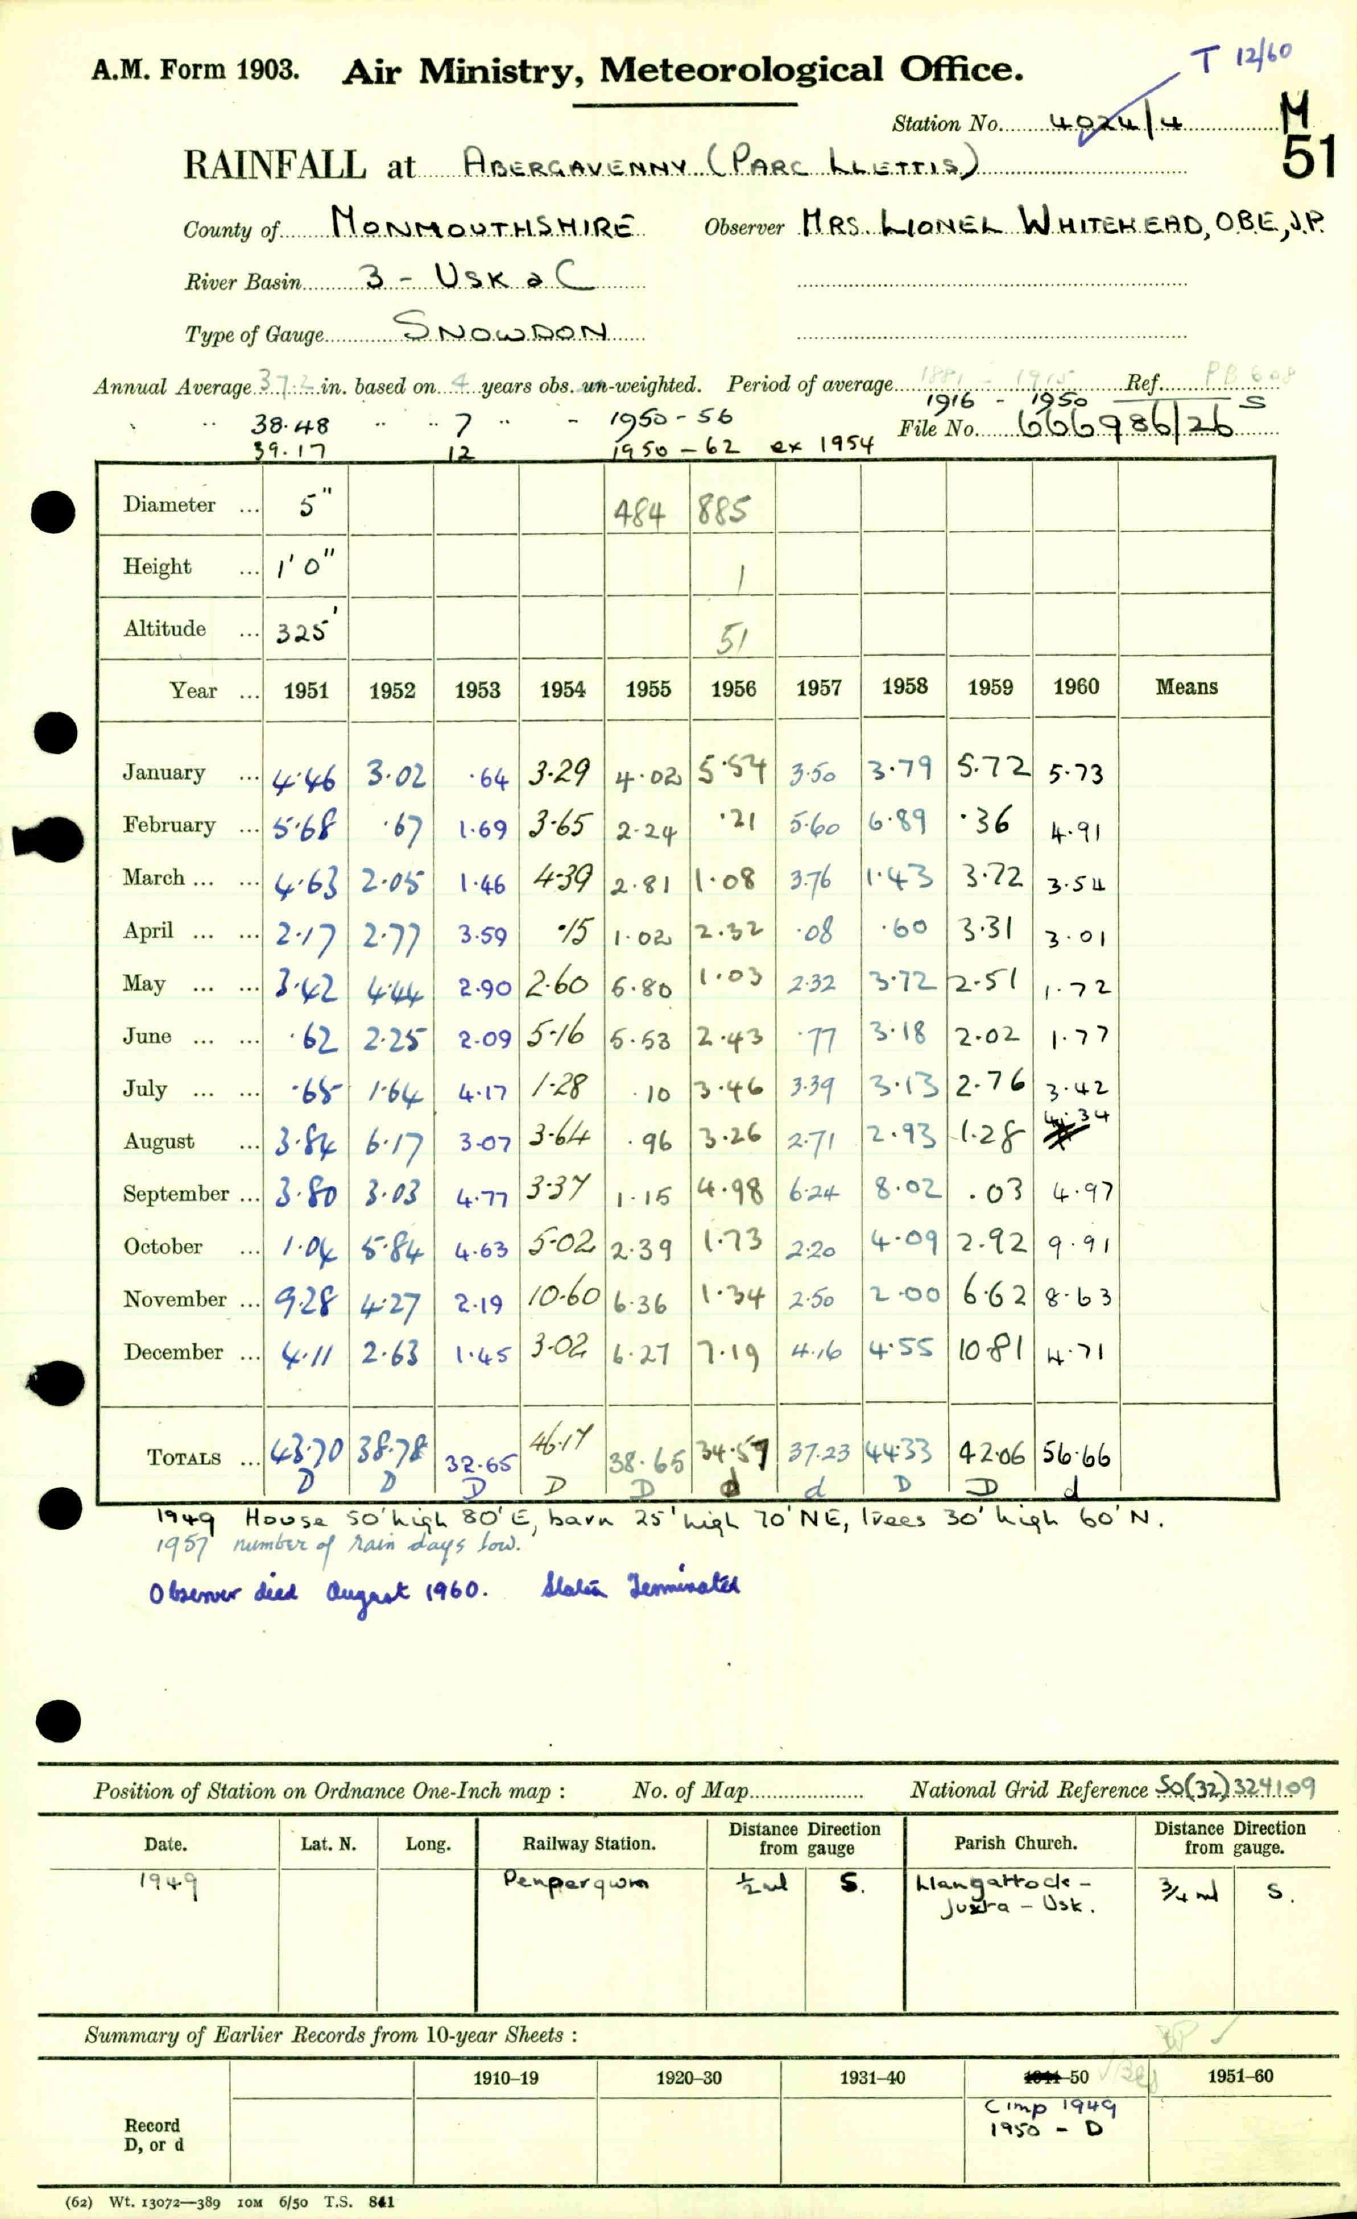 T 12/60
A.M. Form 1903. Air Ministry, Meteorological Office.
Station No. 4024/4 M
51
RAINFALL at ABERGAVENNY (PARC LLETTIS)
County of MONMOUTHSHIRE Observer MRS. LIONEL WHITEHEAD, O.B.E., J.P.
River Basin 3 - USK & C
Type of Gauge SNOWDON
Annual Average 37.2 in. based on 4 years obs. un-weighted. Period of average 1881 - 1915 Ref. PB 608
1916 - 1950 S
" 38.48 " " 7 " - 1950 - 56 File No. 666986/26
39.17 12 1950 - 62 ex 1954
Diameter ... 5" 484 885
Height ... 1' 0" 1
Altitude ... 325' 51
Year ... 1951 1952 1953 1954 1955 1956 1957 1958 1959 1960 Means
January ... 4.46 3.02 .64 3.29 4.02 5.54 3.50 3.79 5.72 5.73
February ... 5.68 .67 1.69 3.65 2.24 .21 5.60 6.89 .36 4.91
March ... ... 4.63 2.05 1.46 4.39 2.81 1.08 3.76 1.43 3.72 3.54
April ... ... 2.17 2.77 3.59 .15 1.02 2.32 .08 .60 3.31 3.01
May ... ... 3.42 4.44 2.90 2.60 5.80 1.03 2.32 3.72 2.51 1.72
June ... ... .62 2.25 2.09 5.16 5.53 2.43 .77 3.18 2.02 1.77
July ... ... .65 1.64 4.17 1.28 .10 3.46 3.39 3.13 2.76 3.42
August ... 3.84 6.17 3.07 3.64 .96 3.26 2.71 2.93 1.28 4.34
September ... 3.80 3.03 4.77 3.37 1.15 4.98 6.24 8.02 .03 4.97
October ... 1.04 5.84 4.63 5.02 2.39 1.73 2.20 4.09 2.92 9.91
November ... 9.28 4.27 2.19 10.60 6.36 1.34 2.50 2.00 6.62 8.63
December ... 4.11 2.63 1.45 3.02 6.27 7.19 4.16 4.55 10.81 4.71
TOTALS ... 43.70 38.78 32.65 46.17 38.65 34.57 37.23 44.33 42.06 56.66
D D D D D d d D D d
1949 House 50' high 80' E, barn 25' high 70' NE, Trees 30' high 60' N.
1957 number of rain days low.
Observer died August 1960. Station Terminated
Position of Station on Ordnance One-Inch map : No. of Map National Grid Reference SO(32)324109
Date. Lat. N. Long. Railway Station. Distance from Direction gauge Parish Church. Distance from Direction gauge.
1949 Penpergwm ½ ml S. Llangattock - ¾ ml S.
Juxta - Usk.
Summary of Earlier Records from 10-year Sheets :
1910-19 1920-30 1931-40 1941-50 1951-60
Record
D, or d
C imp 1949
1950 - D
(62) Wt. 13072—389 10M 6/50 T.S. 841